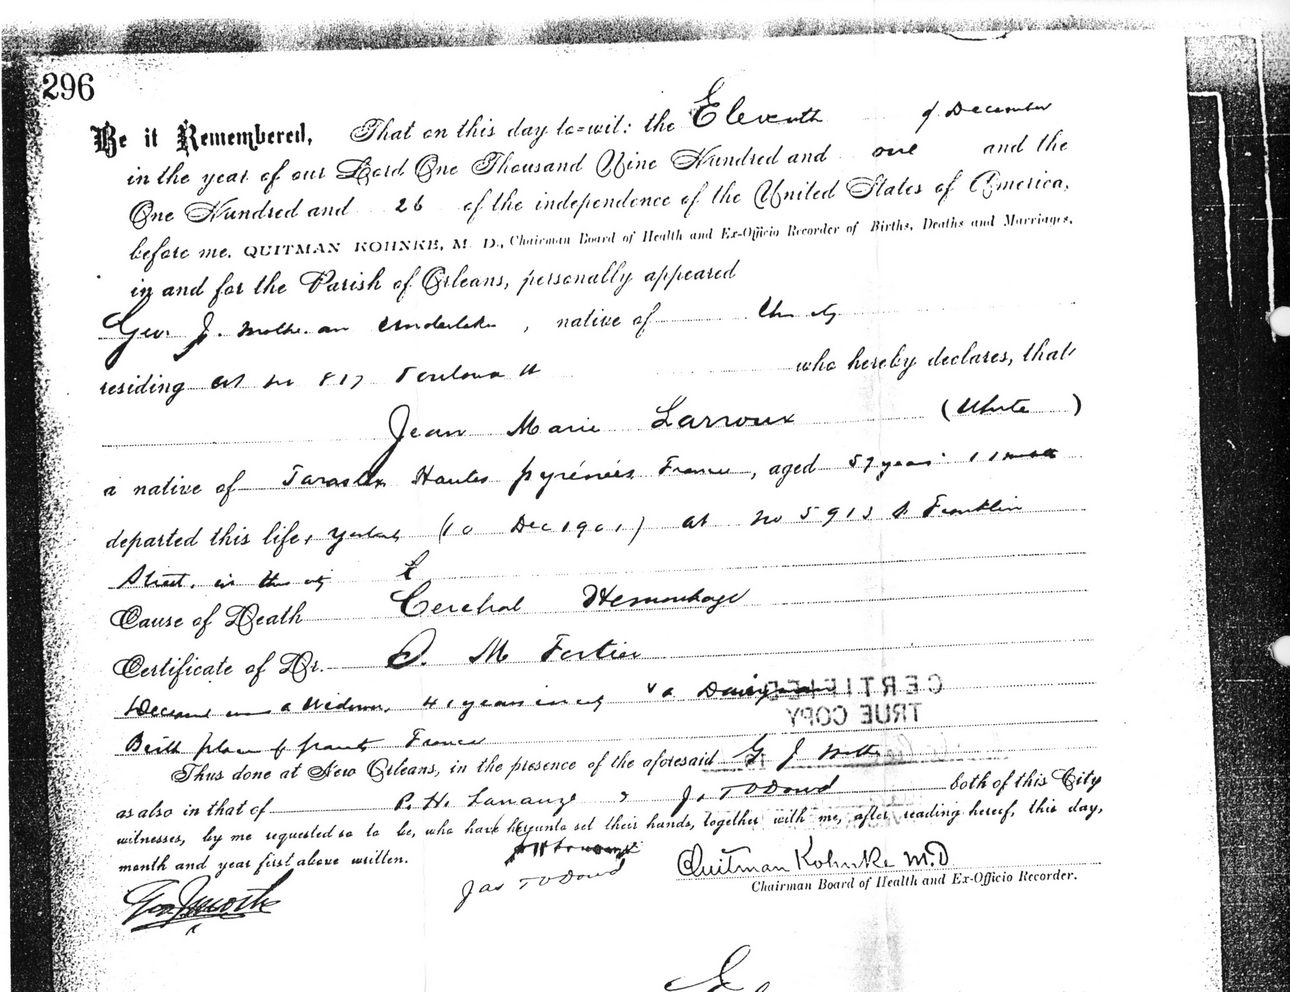 296
Be it Remembered, That on this day to=wit: the Eleventh of December
in the year of our Lord One Thousand Nine Hundred and one and the
One Hundred and 26 of the independence of the United States of America,
before me, QUITMAN KOHNKE, M. D., Chairman Board of Health and Ex-Officio Recorder of Births, Deaths and Marriages,
in and for the Parish of Orleans, personally appeared
Geo. J. Mothe an Undertaker, native of this city
residing at no 817 Toulouse st who hereby declares, that
Jean Marie Larroux (White)
a native of Hautes Pyrénées France, aged 57 years 11
departed this life, yesterday (10 Dec 1901) at no 5913 S Franklin
Street, in this city
Cause of Death Cerebral Hemorrhage
Certificate of Dr. M Fortier
Deceased was a Widower, 41 years in city & a Dairyman
Birth place of parents France
CERTIFIED
TRUE COPY
Thus done at New Orleans, in the presence of the aforesaid G J Mothe
as also in that of P. H. Lanauze & Jas T O Dowd both of this City
witnesses, by me requested so to be, who have hereunto set their hands, together with me, after reading hereof, this day,
month and year first above written.
Jas T O Dowd
Quitman Kohnke M.D
Chairman Board of Health and Ex-Officio Recorder.
Geo J Mothe